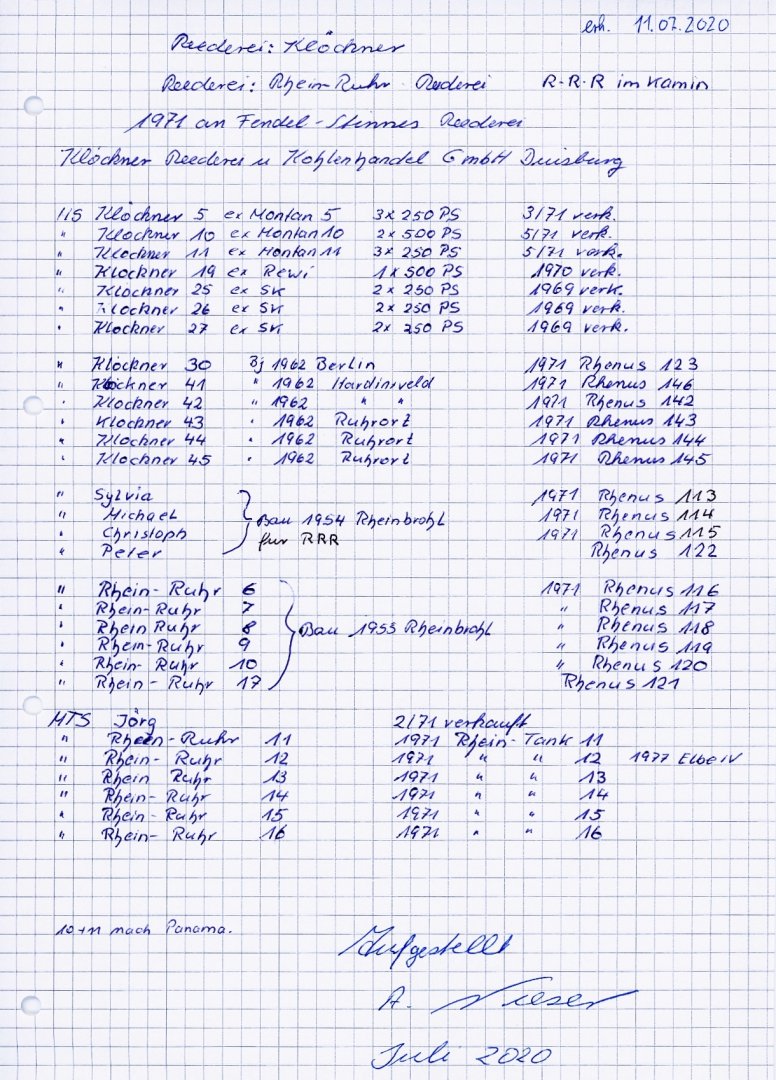 erh. 11.07.2020
Reederei: Klöckner
Reederei: Rhein-Ruhr Reederei R-R-R im Kamin
1971 an Fendel-Stinnes Reederei
Klöckner Reederei u Kohlenhandel GmbH Duisburg
MS Klöckner 5 ex Montan 5 3x 250 PS 3/71 verk.
" Klöckner 10 ex Montan 10 2x 500 PS 5/71 verk.
" Klöckner 11 ex Montan 11 3x 250 PS 5/71 verk.
" Klöckner 19 ex Rewi 1x 500 PS 1970 verk.
" Klöckner 25 ex SK 2x 250 PS 1969 verk.
" Klöckner 26 ex SK 2x 250 PS 1969 verk.
" Klöckner 27 ex SK 2x 250 PS 1969 verk.
" Klöckner 30 Bj 1962 Berlin 1971 Rhenus 123
" Klöckner 41 " 1962 Hardinxveld 1971 Rhenus 146
" Klöckner 42 " 1962 " " 1971 Rhenus 142
" Klöckner 43 " 1962 Ruhrort 1971 Rhenus 143
" Klöckner 44 " 1962 Ruhrort 1971 Rhenus 144
" Klöckner 45 " 1962 Ruhrort 1971 Rhenus 145
" Sylvia 1971 Rhenus 113
" Michael Bau 1954 Rheinbrohl 1971 Rhenus 114
" Christoph für RRR 1971 Rhenus 115
" Peter Rhenus 122
" Rhein-Ruhr 6 1971 Rhenus 116
" Rhein-Ruhr 7 " Rhenus 117
" Rhein Ruhr 8 Bau 1953 Rheinbrohl " Rhenus 118
" Rhein-Ruhr 9 " Rhenus 119
" Rhein-Ruhr 10 " Rhenus 120
" Rhein-Ruhr 17 Rhenus 121
MTS Jörg 2/71 verkauft
" Rhein-Ruhr 11 1971 Rhein-Tank 11
" Rhein-Ruhr 12 1971 " " 12 1977 Elbe IV
" Rhein Ruhr 13 1971 " " 13
" Rhein-Ruhr 14 1971 " " 14
" Rhein-Ruhr 15 1971 " " 15
" Rhein-Ruhr 16 1971 " " 16
10+11 nach Panama.
Aufgestellt
A. Nieser
Juli 2020